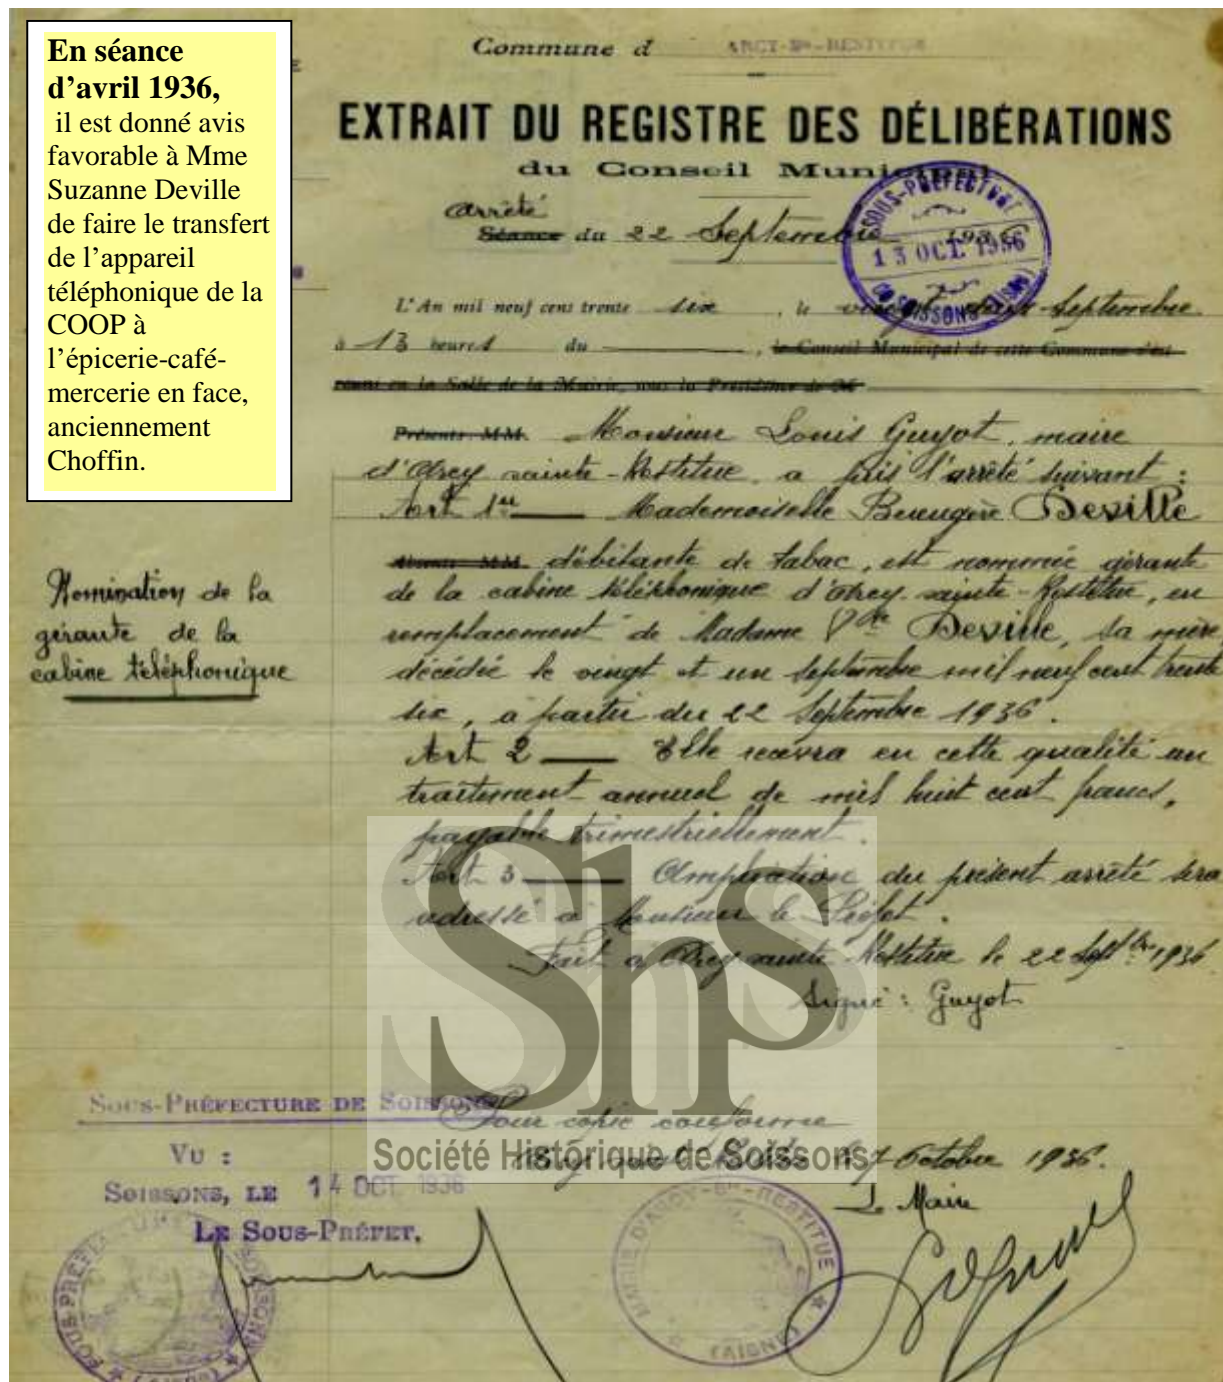 En séance
d’avril 1936,
il est donné avis
favorable à Mme
Suzanne Deville
de faire le transfert
de l’appareil
téléphonique de la
COOP à
l’épicerie-café-
mercerie en face,
anciennement
Choffin.
Commune d ARCY-Ste-RESTITUE
EXTRAIT DU REGISTRE DES DÉLIBÉRATIONS
du Conseil Municipal
arrêté
Séance du 22 Septembre 1936
SOUS-PRÉFECTURE
13 OCT. 1936
DE SOISSONS (AISNE)
L'An mil neuf cent trente six, le vingt deux Septembre
à 13 heures du , le Conseil Municipal de cette Commune s'est
réuni en la Salle de la Mairie, sous la Présidence de M
Présents MM. Monsieur Louis Guyot, maire
d'Arcy sainte-Restitue, a pris l'arrêté suivant :
Art 1er Mademoiselle Berengère Deville
Absents MM. débitante de tabac, est nommée gérante
de la cabine téléphonique d'Arcy-sainte-Restitue, en
remplacement de Madame Vve Deville, sa mère
décédée le vingt et un septembre mil neuf cent trente
six, à partir du 22 Septembre 1936.
Art 2 Elle recevra en cette qualité un
traitement annuel de mil huit cent francs,
payable trimestriellement.
Art 3 Ampliation du présent arrêté sera
adressé à Monsieur le Préfet.
Fait à Arcy sainte Restitue le 22 Septbre 1936
Signé : Guyot
Nomination de la
gérante de la
cabine téléphonique
Shs
Société Historique de Soissons
Pour copie conforme
Arcy sainte Restitue le 7 Octobre 1936.
Le Maire
SOUS-PRÉFECTURE DE SOISSONS
VU :
SOISSONS, LE 14 OCT 1936
LE SOUS-PRÉFET,
MAIRIE D'ARCY-Ste-RESTITUE
(AISNE)